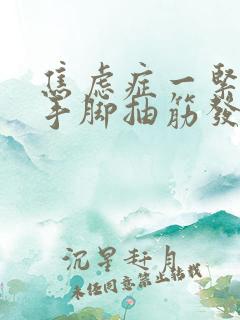 焦虑症一緊
手脚抽筋發
沉星赶月
未任同意禁止转载